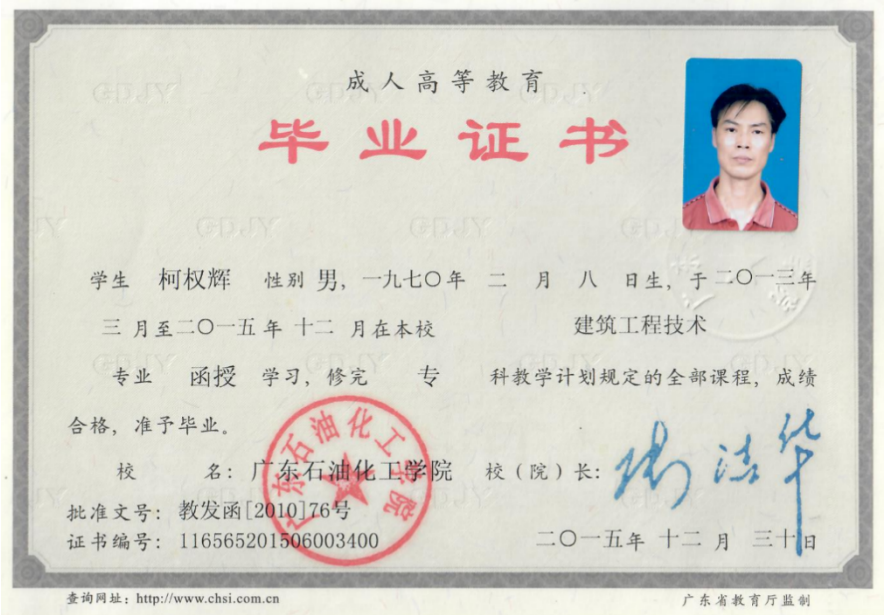 成人高等教育
毕业证书
学生 柯权辉 性别 男，一九七〇年 二 月 八 日生，于二〇一三年
三 月至二〇一五年 十二 月在本校 建筑工程技术
专业 函授 学习，修完 专 科教学计划规定的全部课程，成绩
合格，准予毕业。
校 名：广东石油化工学院 校（院）长：
批准文号：教发函[2010]76号
证书编号：116565201506003400 二〇一五年 十二 月 三十日
广东石油化工学院
查询网址：http://www.chsi.com.cn 广东省教育厅监制
GDJY